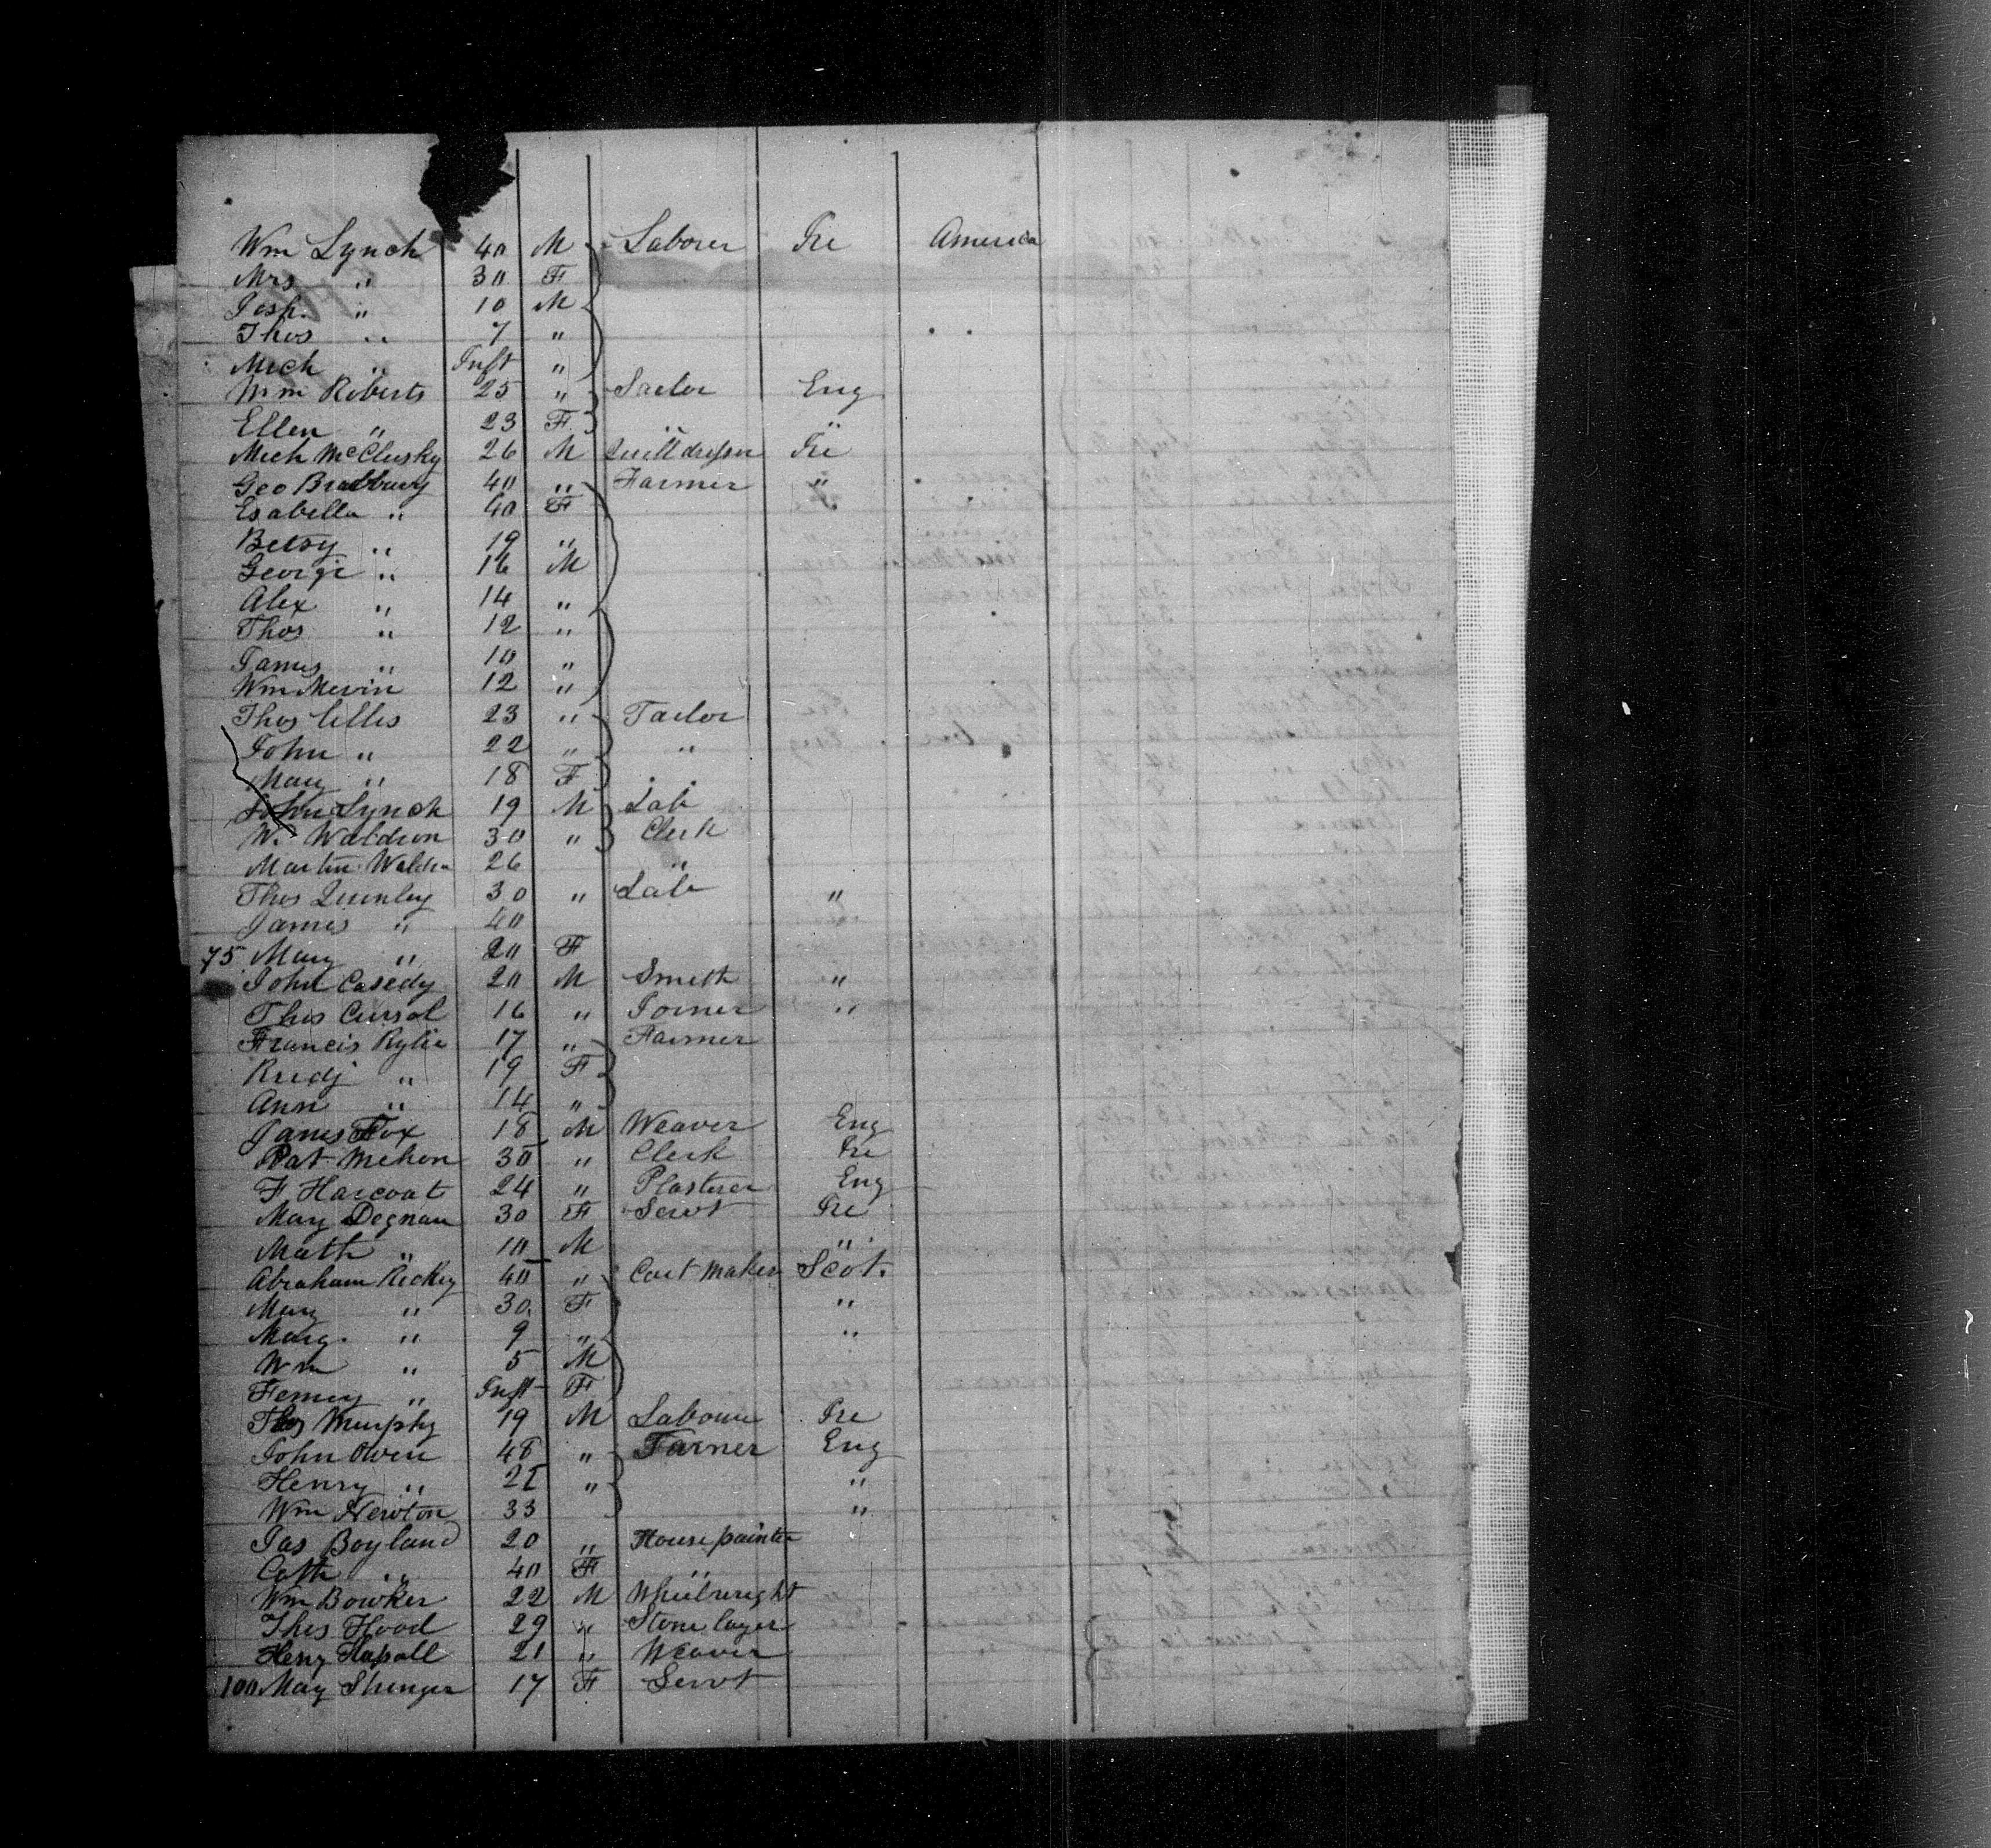 Wm Lynch 40 M Laborer Ire America
Mrs " 30 F
Josh. " 10 M
Thos " 7 "
Mich " Inft "
Wm Roberts 25 " Tailor Eng
Ellen " 23 F " "
Mich McClusky 26 M Quill dresser Ire
Geo Bradbury 40 " Farmer "
Esabella " 40 F
Betsy " 19 "
George " 16 M
Alex " 14 "
Thos " 12 "
James " 10 "
Wm Mevin 12 "
Thos Ellis 23 " Tailor
John " 22 " "
Mary " 18 F
John Lynch 19 M Lab
W. Waldron 30 " Clerk
Martin Waldrn 26 "
Thos Quinley 30 " Lab "
James " 40
75 Mary " 20 F
John Casedy 20 M Smith "
Thos Cursol 16 " Joiner "
Francis Rylie 17 " Farmer
Bridj " 19 F
Ann " 14 "
James Fox 18 M Weaver Eng
Pat Mehon 30 " Clerk Ire
F Harcoat 24 " Plasterer Eng
Mary Degnan 30 F Servt Ire
Math " 10 M "
Abraham Rickey 40 " Cart Maker Scot.
Mary " 30 F "
Marg. " 9 " "
Wm " 5 M
" Inft F
Thos Murphy 19 M Labour Ire
John Owen 48 " Farmer Eng
Henry " 21 " "
Wm Newton 33 "
Jas Boyland 20 " House painter
Cath " 40 F "
Wm Bowker 22 M Wheelwright
Thos Hood 29 " Stone layer
Heny 21 " Weaver
100 May 17 F Servt